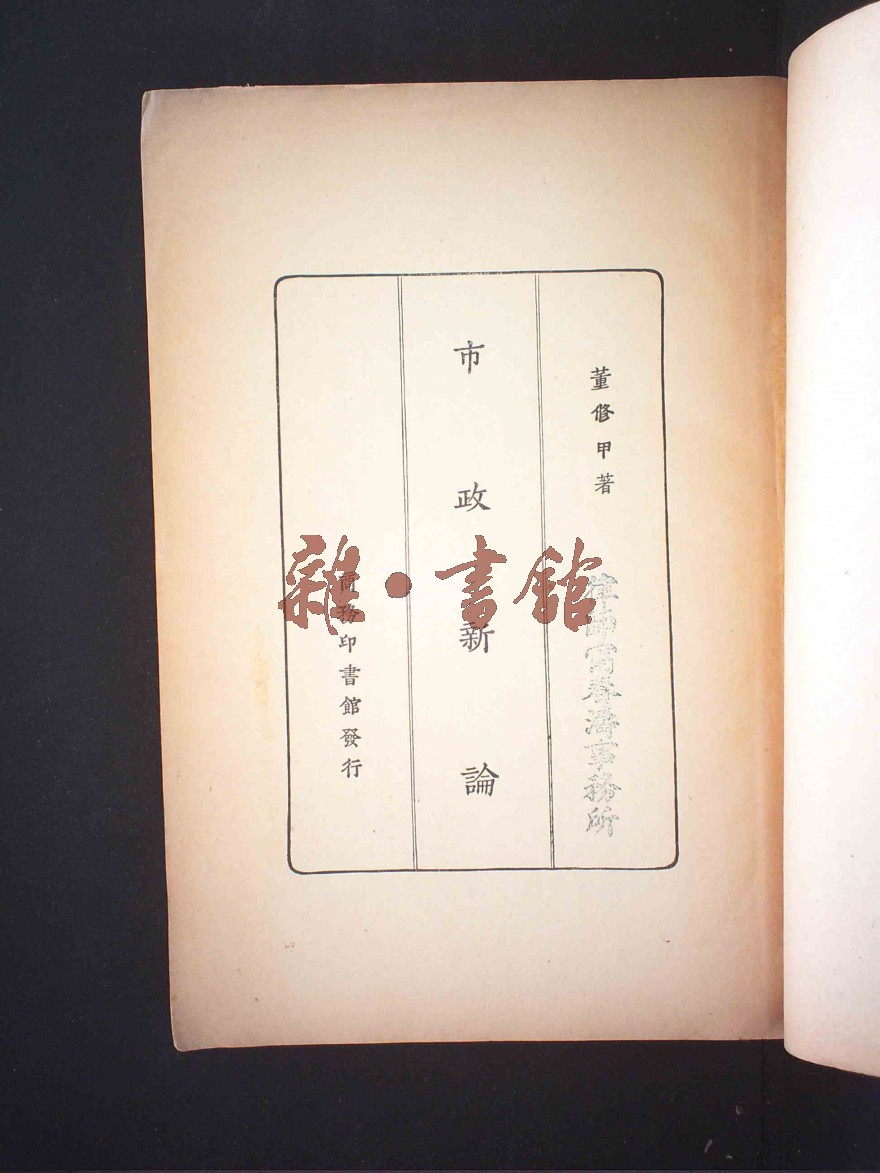 董修甲著
律師富春濤事務所
市政新論
商務印書館發行
雜·書館